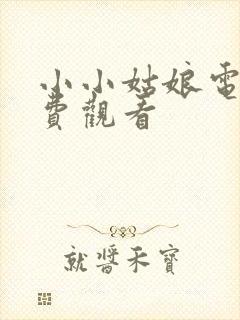 小小姑娘電
費觀看
就醬禾寶